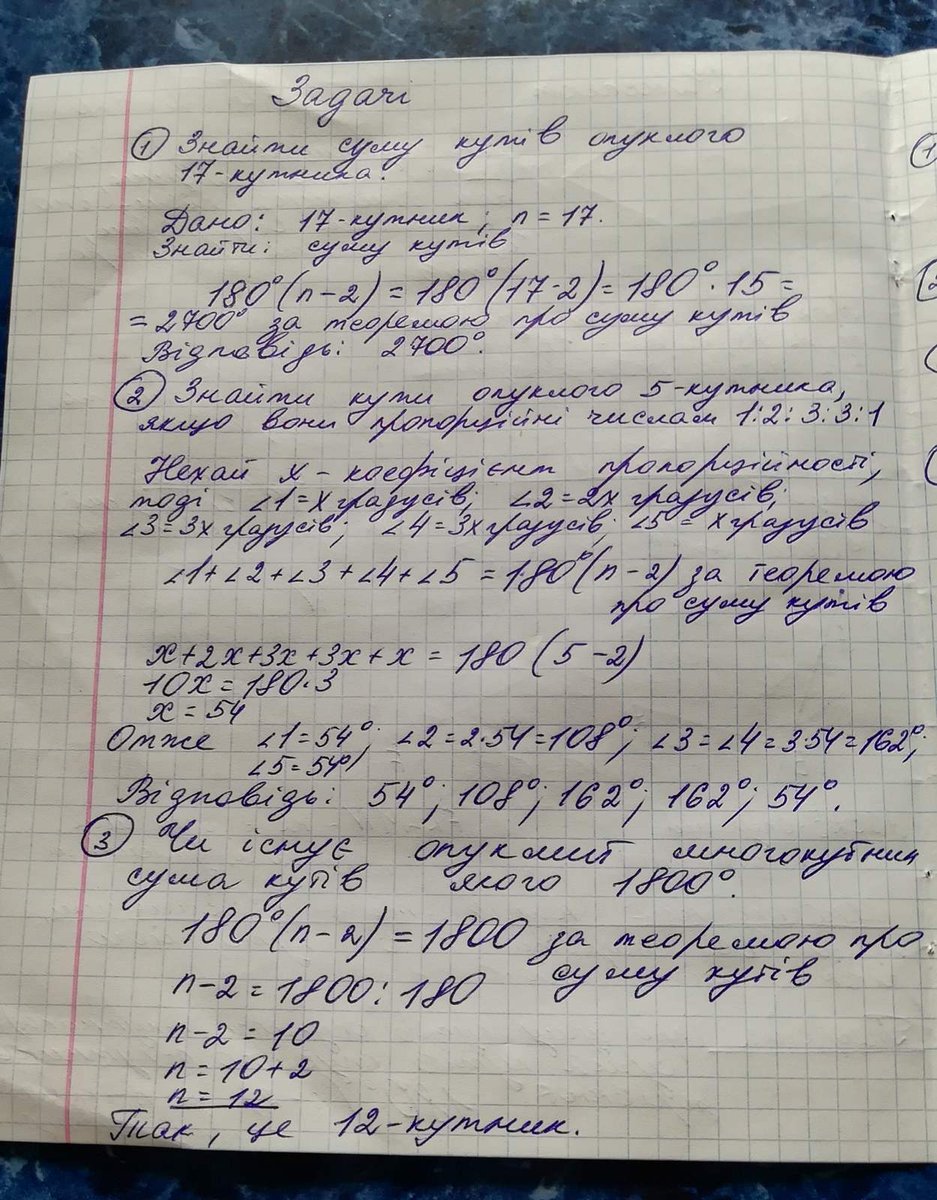 Задачі
① Знайти суму кутів опуклого
17-кутника.
Дано: 17-кутник; n = 17.
Знайти: суму кутів
180°(n-2) = 180°(17-2) = 180° · 15 =
= 2700° за теоремою про суму кутів
Відповідь: 2700°.
② Знайти кути опуклого 5-кутника,
якщо вони пропорційні числам 1:2:3:3:1
Нехай х - коефіцієнт пропорційності,
тоді ∠1 = х градусів; ∠2 = 2х градусів;
∠3 = 3х градусів; ∠4 = 3х градусів; ∠5 = х градусів
∠1+∠2+∠3+∠4+∠5 = 180°(n-2) за теоремою
про суму кутів
х+2х+3х+3х+х = 180 (5-2)
10х = 180·3
х = 54
Отже ∠1 = 54°; ∠2 = 2·54 = 108°; ∠3 = ∠4 = 3·54 = 162°;
∠5 = 54°
Відповідь: 54°; 108°; 162°; 162°; 54°.
③ Чи існує опуклий многокутник
сума кутів якого 1800°.
180°(n-2) = 1800 за теоремою про
суму кутів
n-2 = 1800:180
n-2 = 10
n = 10+2
n = 12
Так, це 12-кутник.